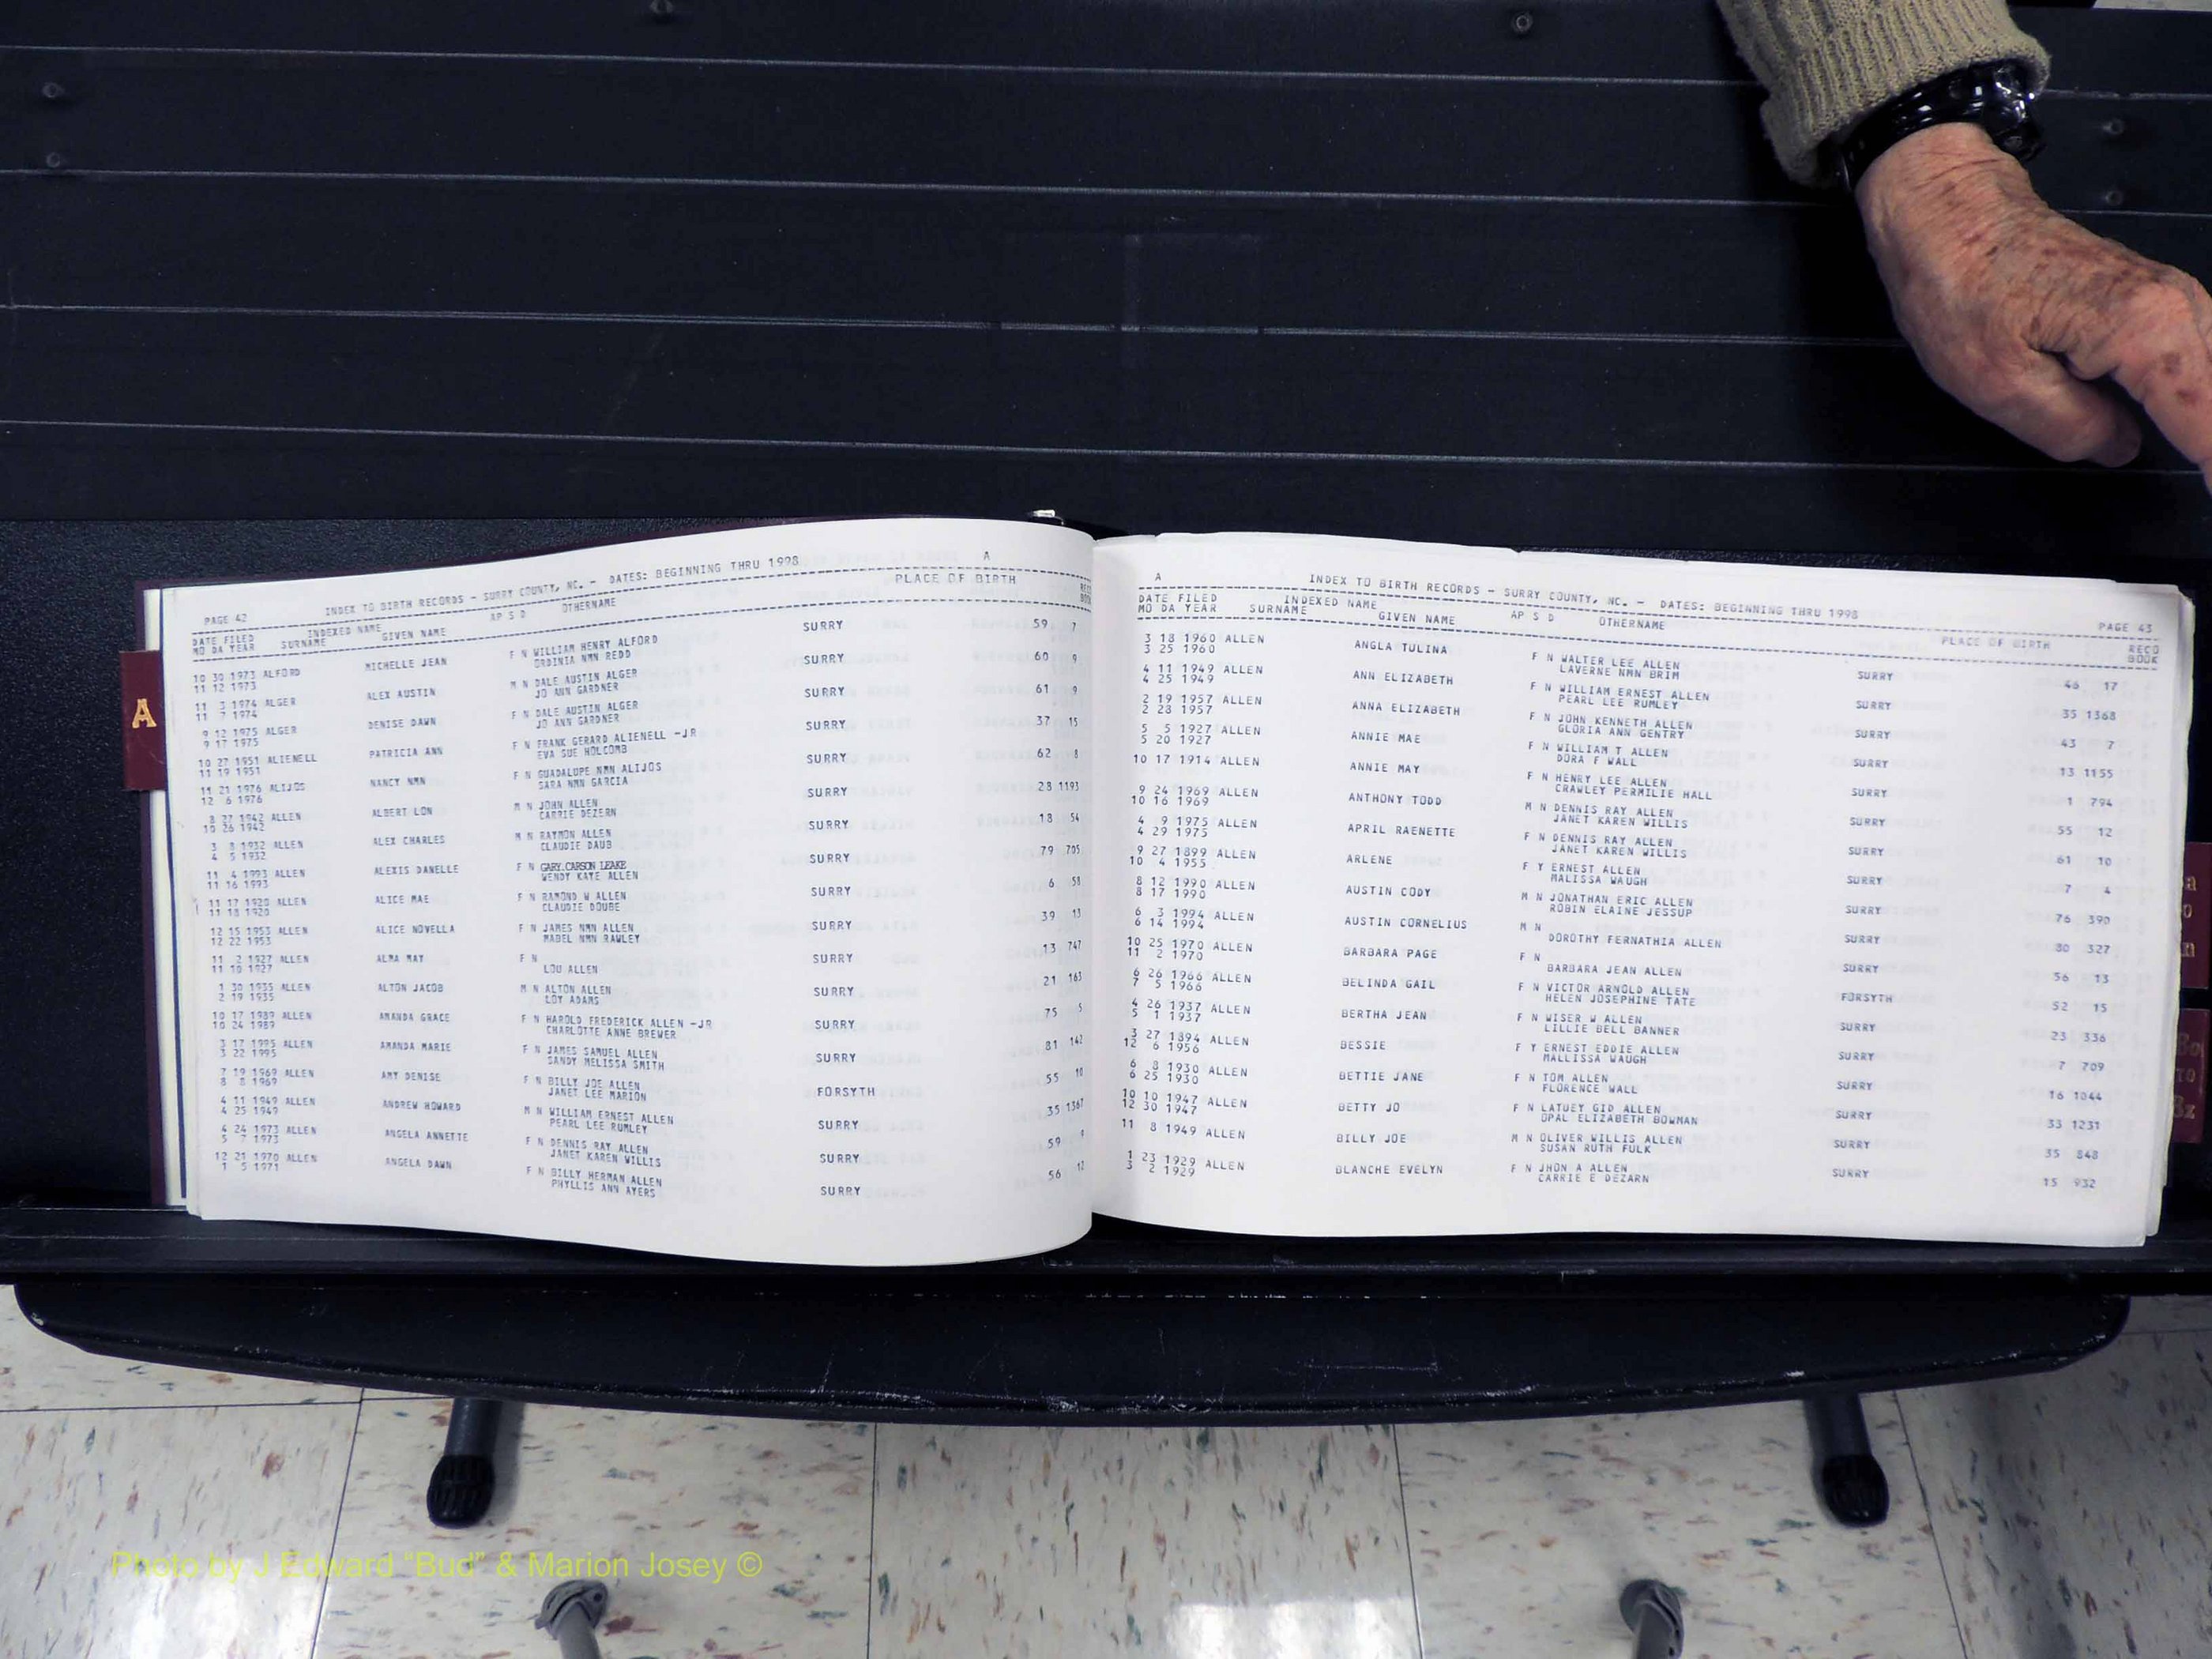 A
PAGE 42 INDEX TO BIRTH RECORDS - SURRY COUNTY, NC. - DATES: BEGINNING THRU 1998 A
DATE FILED INDEXED NAME AP S D OTHERNAME PLACE OF BIRTH
MO DA YEAR SURNAME GIVEN NAME BOOK
10 30 1973 ALFORD MICHELLE JEAN F N WILLIAM HENRY ALFORD SURRY 59 7
11 12 1973 ORDINIA NMN REDD
11 3 1974 ALGER ALEX AUSTIN M N DALE AUSTIN ALGER SURRY 60 9
11 7 1974 JO ANN GARDNER
9 12 1975 ALGER DENISE DAWN F N DALE AUSTIN ALGER SURRY 61 9
9 17 1975 JO ANN GARDNER
10 27 1951 ALIENELL PATRICIA ANN F N FRANK GERARD ALIENELL -JR SURRY 37 15
11 19 1951 EVA SUE HOLCOMB
11 21 1976 ALIJOS NANCY NMN F N GUADALUPE NMN ALIJOS SURRY 62 8
12 6 1976 SARA NMN GARCIA
8 27 1942 ALLEN ALBERT LON M N JOHN ALLEN SURRY 28 1193
10 26 1942 CARRIE DEZERN
3 8 1932 ALLEN ALEX CHARLES M N RAYMON ALLEN SURRY 18 54
4 5 1932 CLAUDIE DAUB
11 4 1993 ALLEN ALEXIS DANELLE F N GARY CARSON LEAKE SURRY 79 705
11 16 1993 WENDY KAYE ALLEN
11 17 1920 ALLEN ALICE MAE F N RAMOND W ALLEN SURRY 6 58
11 18 1920 CLAUDIE DOUBE
12 15 1953 ALLEN ALICE NOVELLA F N JAMES NMN ALLEN SURRY 39 13
12 22 1953 MABEL NMN RAWLEY
11 2 1927 ALLEN ALMA MAY F N SURRY 13 747
11 10 1927 LOU ALLEN
1 30 1935 ALLEN ALTON JACOB M N ALTON ALLEN SURRY 21 163
2 19 1935 LOY ADAMS
10 17 1989 ALLEN AMANDA GRACE F N HAROLD FREDERICK ALLEN -JR SURRY 75 5
10 24 1989 CHARLOTTE ANNE BREWER
3 17 1995 ALLEN AMANDA MARIE F N JAMES SAMUEL ALLEN SURRY 81 142
3 22 1995 SANDY MELISSA SMITH
7 19 1969 ALLEN AMY DENISE F N BILLY JOE ALLEN FORSYTH 55 10
8 8 1969 JANET LEE MARION
4 11 1949 ALLEN ANDREW HOWARD M N WILLIAM ERNEST ALLEN SURRY 35 1367
4 25 1949 PEARL LEE RUMLEY
4 24 1973 ALLEN ANGELA ANNETTE F N DENNIS RAY ALLEN SURRY 59
5 7 1973 JANET KAREN WILLIS
12 21 1970 ALLEN ANGELA DAWN F N BILLY HERMAN ALLEN SURRY 56 12
1 5 1971 PHYLLIS ANN AYERS
A INDEX TO BIRTH RECORDS - SURRY COUNTY, NC. - DATES: BEGINNING THRU 1998 PAGE 43
DATE FILED INDEXED NAME AP S D OTHERNAME PLACE OF BIRTH RECO
MO DA YEAR SURNAME GIVEN NAME BOOK
3 18 1960 ALLEN ANGLA TULINA F N WALTER LEE ALLEN SURRY 46 17
3 25 1960 LAVERNE NMN BRIM
4 11 1949 ALLEN ANN ELIZABETH F N WILLIAM ERNEST ALLEN SURRY 35 1368
4 25 1949 PEARL LEE RUMLEY
2 19 1957 ALLEN ANNA ELIZABETH F N JOHN KENNETH ALLEN SURRY 43 7
2 28 1957 GLORIA ANN GENTRY
5 5 1927 ALLEN ANNIE MAE F N WILLIAM T ALLEN SURRY 13 1155
5 20 1927 DORA F WALL
10 17 1914 ALLEN ANNIE MAY F N HENRY LEE ALLEN SURRY 1 794
CRAWLEY PERMILIE HALL
9 24 1969 ALLEN ANTHONY TODD M N DENNIS RAY ALLEN SURRY 55 12
10 16 1969 JANET KAREN WILLIS
4 9 1975 ALLEN APRIL RAENETTE F N DENNIS RAY ALLEN SURRY 61 10
4 29 1975 JANET KAREN WILLIS
9 27 1899 ALLEN ARLENE F Y ERNEST ALLEN SURRY 7 4
10 4 1955 MALISSA WAUGH
8 12 1990 ALLEN AUSTIN CODY M N JONATHAN ERIC ALLEN SURRY 76 390
8 17 1990 ROBIN ELAINE JESSUP
6 3 1994 ALLEN AUSTIN CORNELIUS M N SURRY 80 327
6 14 1994 DOROTHY FERNATHIA ALLEN
10 25 1970 ALLEN BARBARA PAGE F N SURRY 56 13
11 2 1970 BARBARA JEAN ALLEN
6 26 1966 ALLEN BELINDA GAIL F N VICTOR ARNOLD ALLEN FORSYTH 52 15
7 5 1966 HELEN JOSEPHINE TATE
4 26 1937 ALLEN BERTHA JEAN F N WISER W ALLEN SURRY 23 336
5 1 1937 LILLIE BELL BANNER
3 27 1894 ALLEN BESSIE F Y ERNEST EDDIE ALLEN SURRY 7 709
12 6 1956 MALLISSA WAUGH
6 8 1930 ALLEN BETTIE JANE F N TOM ALLEN SURRY 16 1044
6 25 1930 FLORENCE WALL
10 10 1947 ALLEN BETTY JO F N LATUEY GID ALLEN SURRY 33 1231
12 30 1947 OPAL ELIZABETH BOWMAN
11 8 1949 ALLEN BILLY JOE M N OLIVER WILLIS ALLEN SURRY 35 848
SUSAN RUTH FULK
1 23 1929 ALLEN BLANCHE EVELYN F N JHON A ALLEN SURRY 15 932
3 2 1929 CARRIE E DEZARN
Photo by J Edward “Bud” & Marion Josey ©